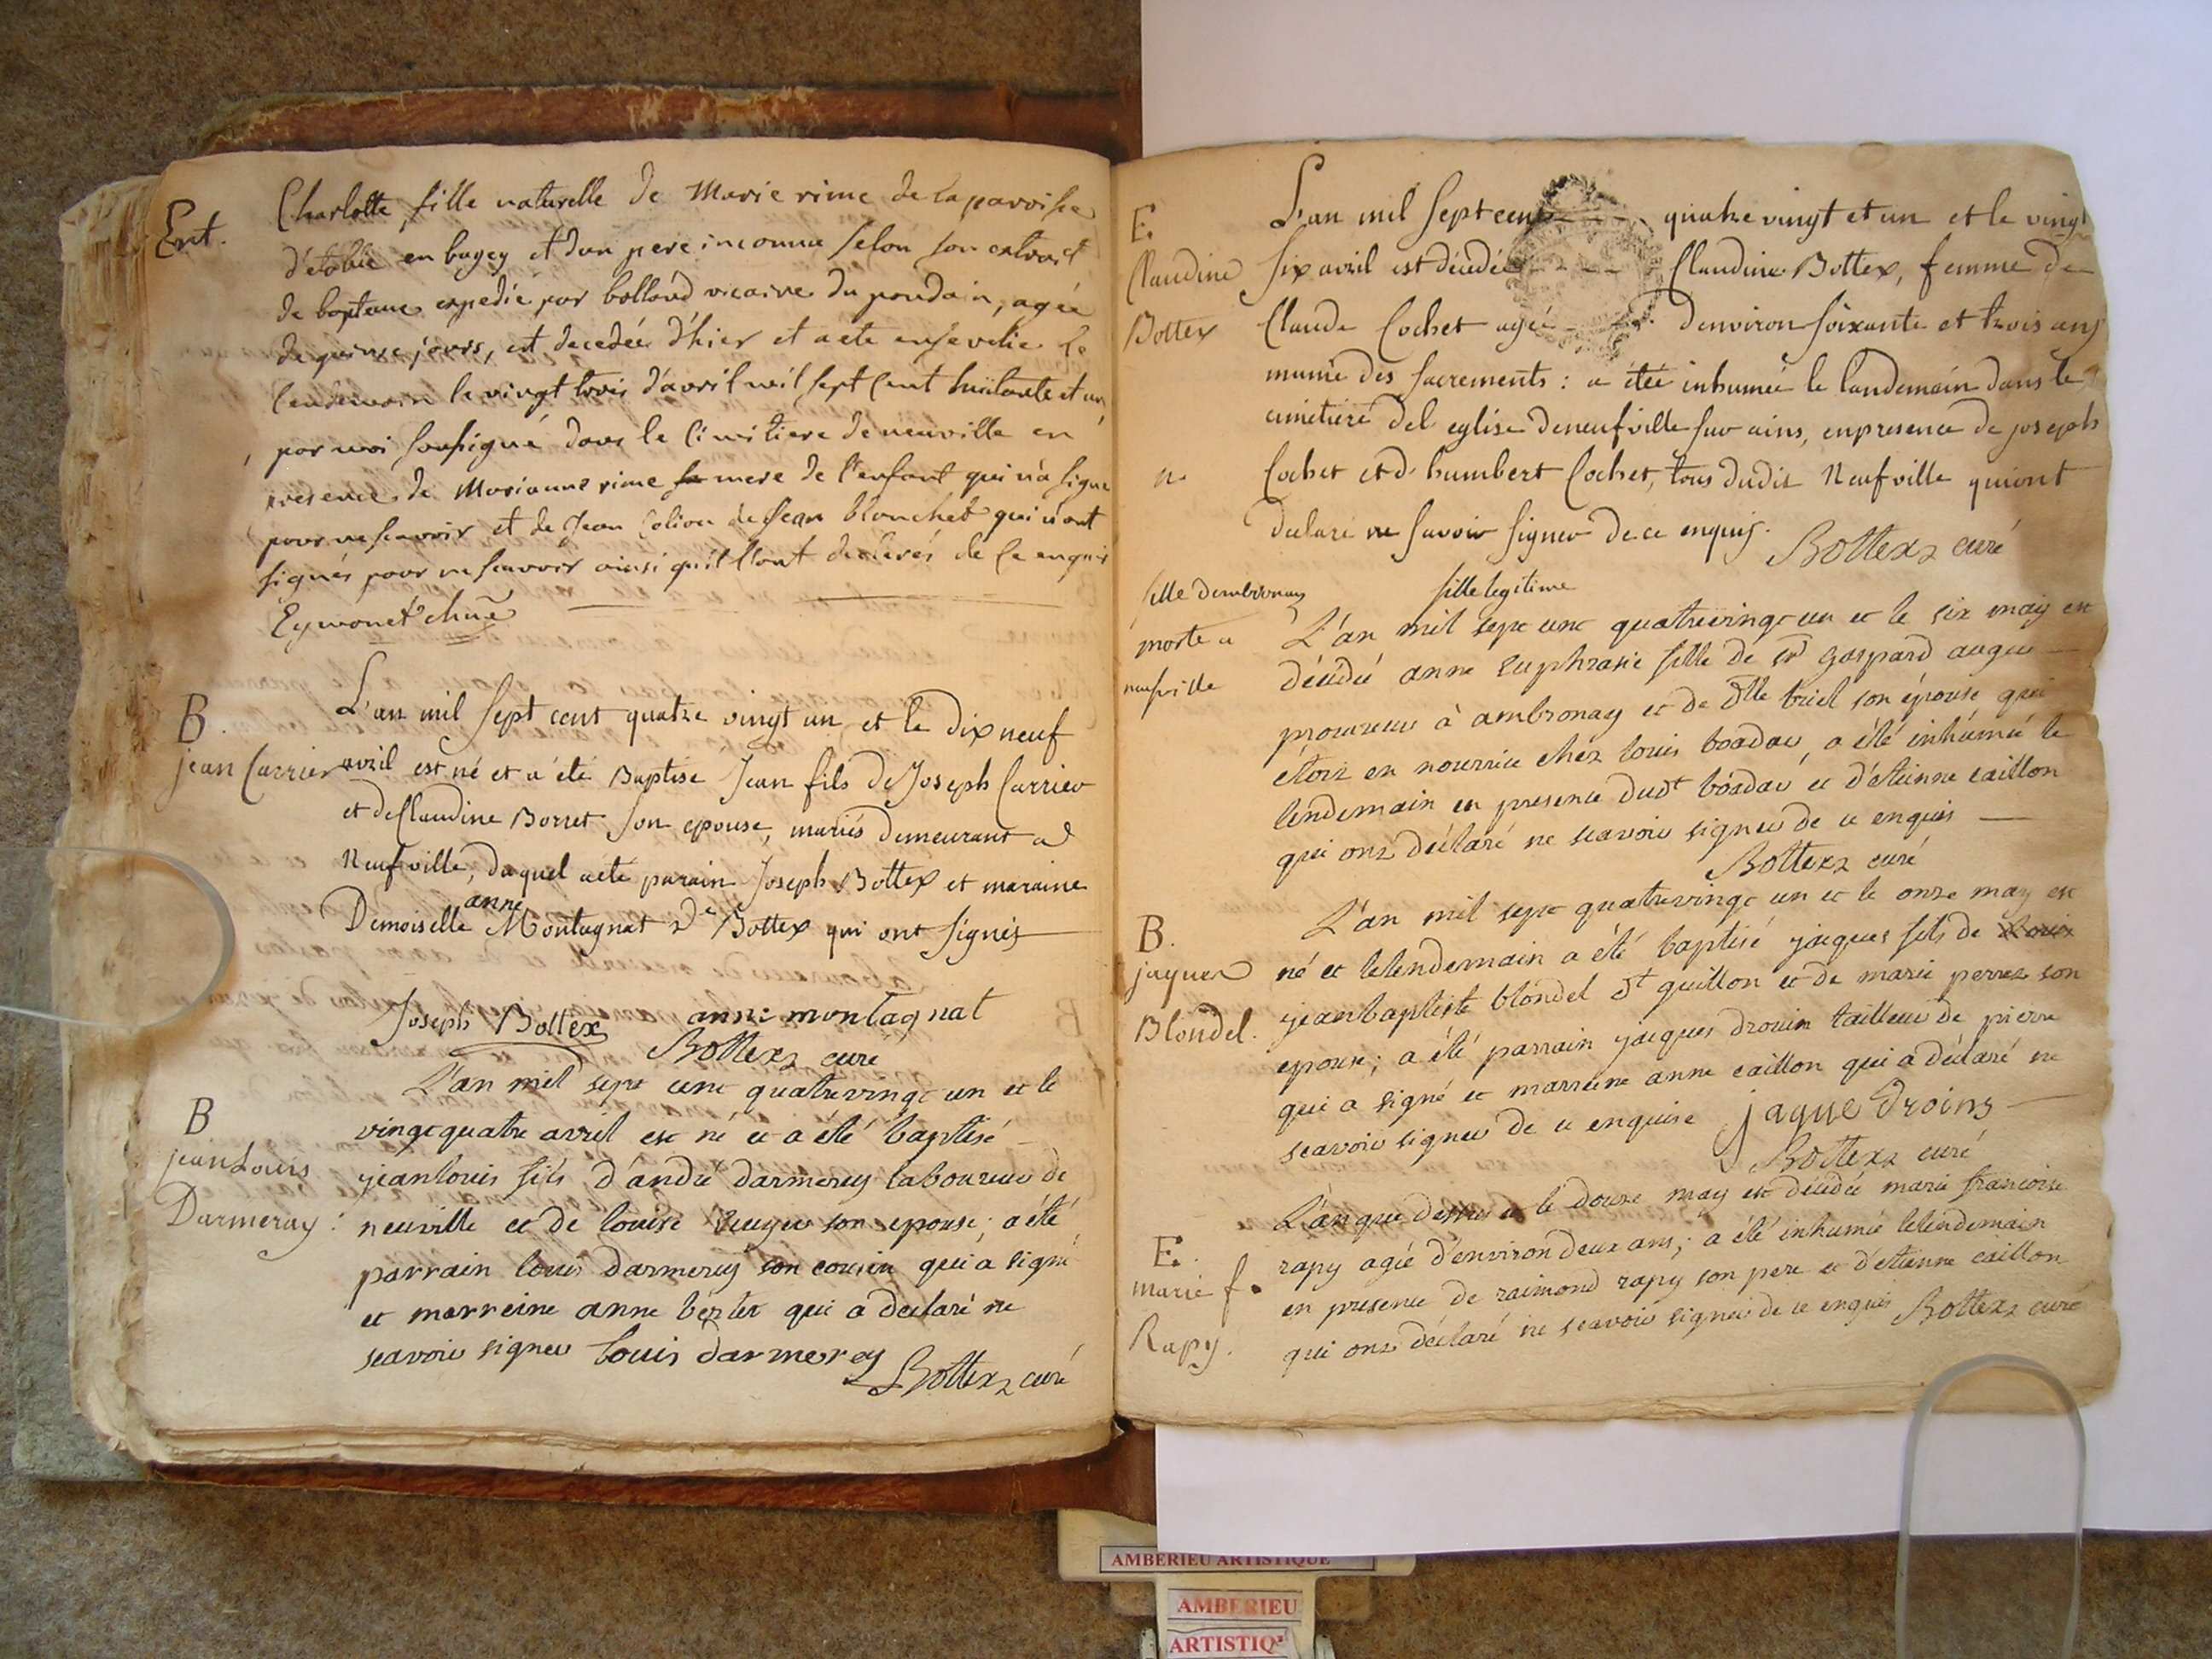 Ent.
Charlotte fille naturelle de Marie rime de la paroisse
en bugey et d'un pere inconnu selon son extrait
de bapteme expedié par vicaire du poudain, agée
de quinze jours, est decedée d'hier et a ete ensevelie le
lendemain le vingt trois d'avril mil sept cent huitante et un
par moi soussigné dans le cimitiere de neuville en
presence de Marianne rime mere de l'enfant qui n'a signé
pour ne scavoir et de Jean de Jean blanchet qui n'ont
signés pour ne scavoir ainsi qu'il l'ont declarés de ce enquis
B.
jean Carrier
L'an mil sept cent quatre vingt un et le dix neuf
avril est né et a été Baptise Jean fils de Joseph Carrier
et de Claudine Borret son epouse, mariés demeurant a
Neufville, duquel a été parain Joseph Bottex et maraine
anne
Demoiselle Montagnat de Bottex qui ont signés
Joseph Bottex anne montagnat
Bottex curé
B
jean Louis
Darmeray :
L'an mil sept cent quatrevingt un et le
vingt quatre avril est né et a été baptisé
jean louis fils d'andré darmerey laboureur de
neuville et de louise son epouse ; a été
parrain louis darmerey son cousin qui a signé
et marreine anne qui a déclaré ne
scavoir signer louis darmerey
Bottex curé
E.
Claudine
Bottex
n.
L'an mil sept cent quatre vingt et un et le vingt
six avril est décédée Claudine Bottex, femme de
Claude Cochet agée d'environ soixante et trois ans
munie des sacrements : a étée inhumée le landemain dans le
cimetiere del eglise de neufville sur ains, en presence de joseph
Cochet et d'humbert Cochet, tous dudit Neufville qui ont
declaré ne savoir signer de ce enquis.
Bottex curé
fille d'ambronay
morte a
neufville
fille legitime
L'an mil sept cent quatrevingt un et le six may est
décédée anne Euphrasie fille de Sr gaspard
procureur à ambronay et de dlle son épouse, qui
étoit en nourrice chez louis, a été inhumée le
lendemain en presence dudt et d'etienne caillon
qui ont déclaré ne scavoir signer de ce enquis
Bottex curé
B.
jaques
Blondel.
L'an mil sept quatrevingt un et le onze may est
né et le lendemain a été baptisé jaques fils de
jean baptiste blondel dt guillon et de marie perret son
epouse ; a été parrain jaques drouin tailleur de pierre
qui a signé et marreine anne caillon qui a déclaré ne
scavoir signer de ce enquise jaque droins
Bottex curé
E.
marie f.
Rapy.
L'an que dessus et le douze may est décédée marie francoise
rapy agée d'environ deux ans ; a été inhumée le lendemain
en presence de raimond rapy son pere et d'etienne caillon
qui ont déclaré ne scavoir signer de ce enquis Bottex curé
AMBERIEU ARTISTIQUE
AMBERIEU
ARTISTIQ